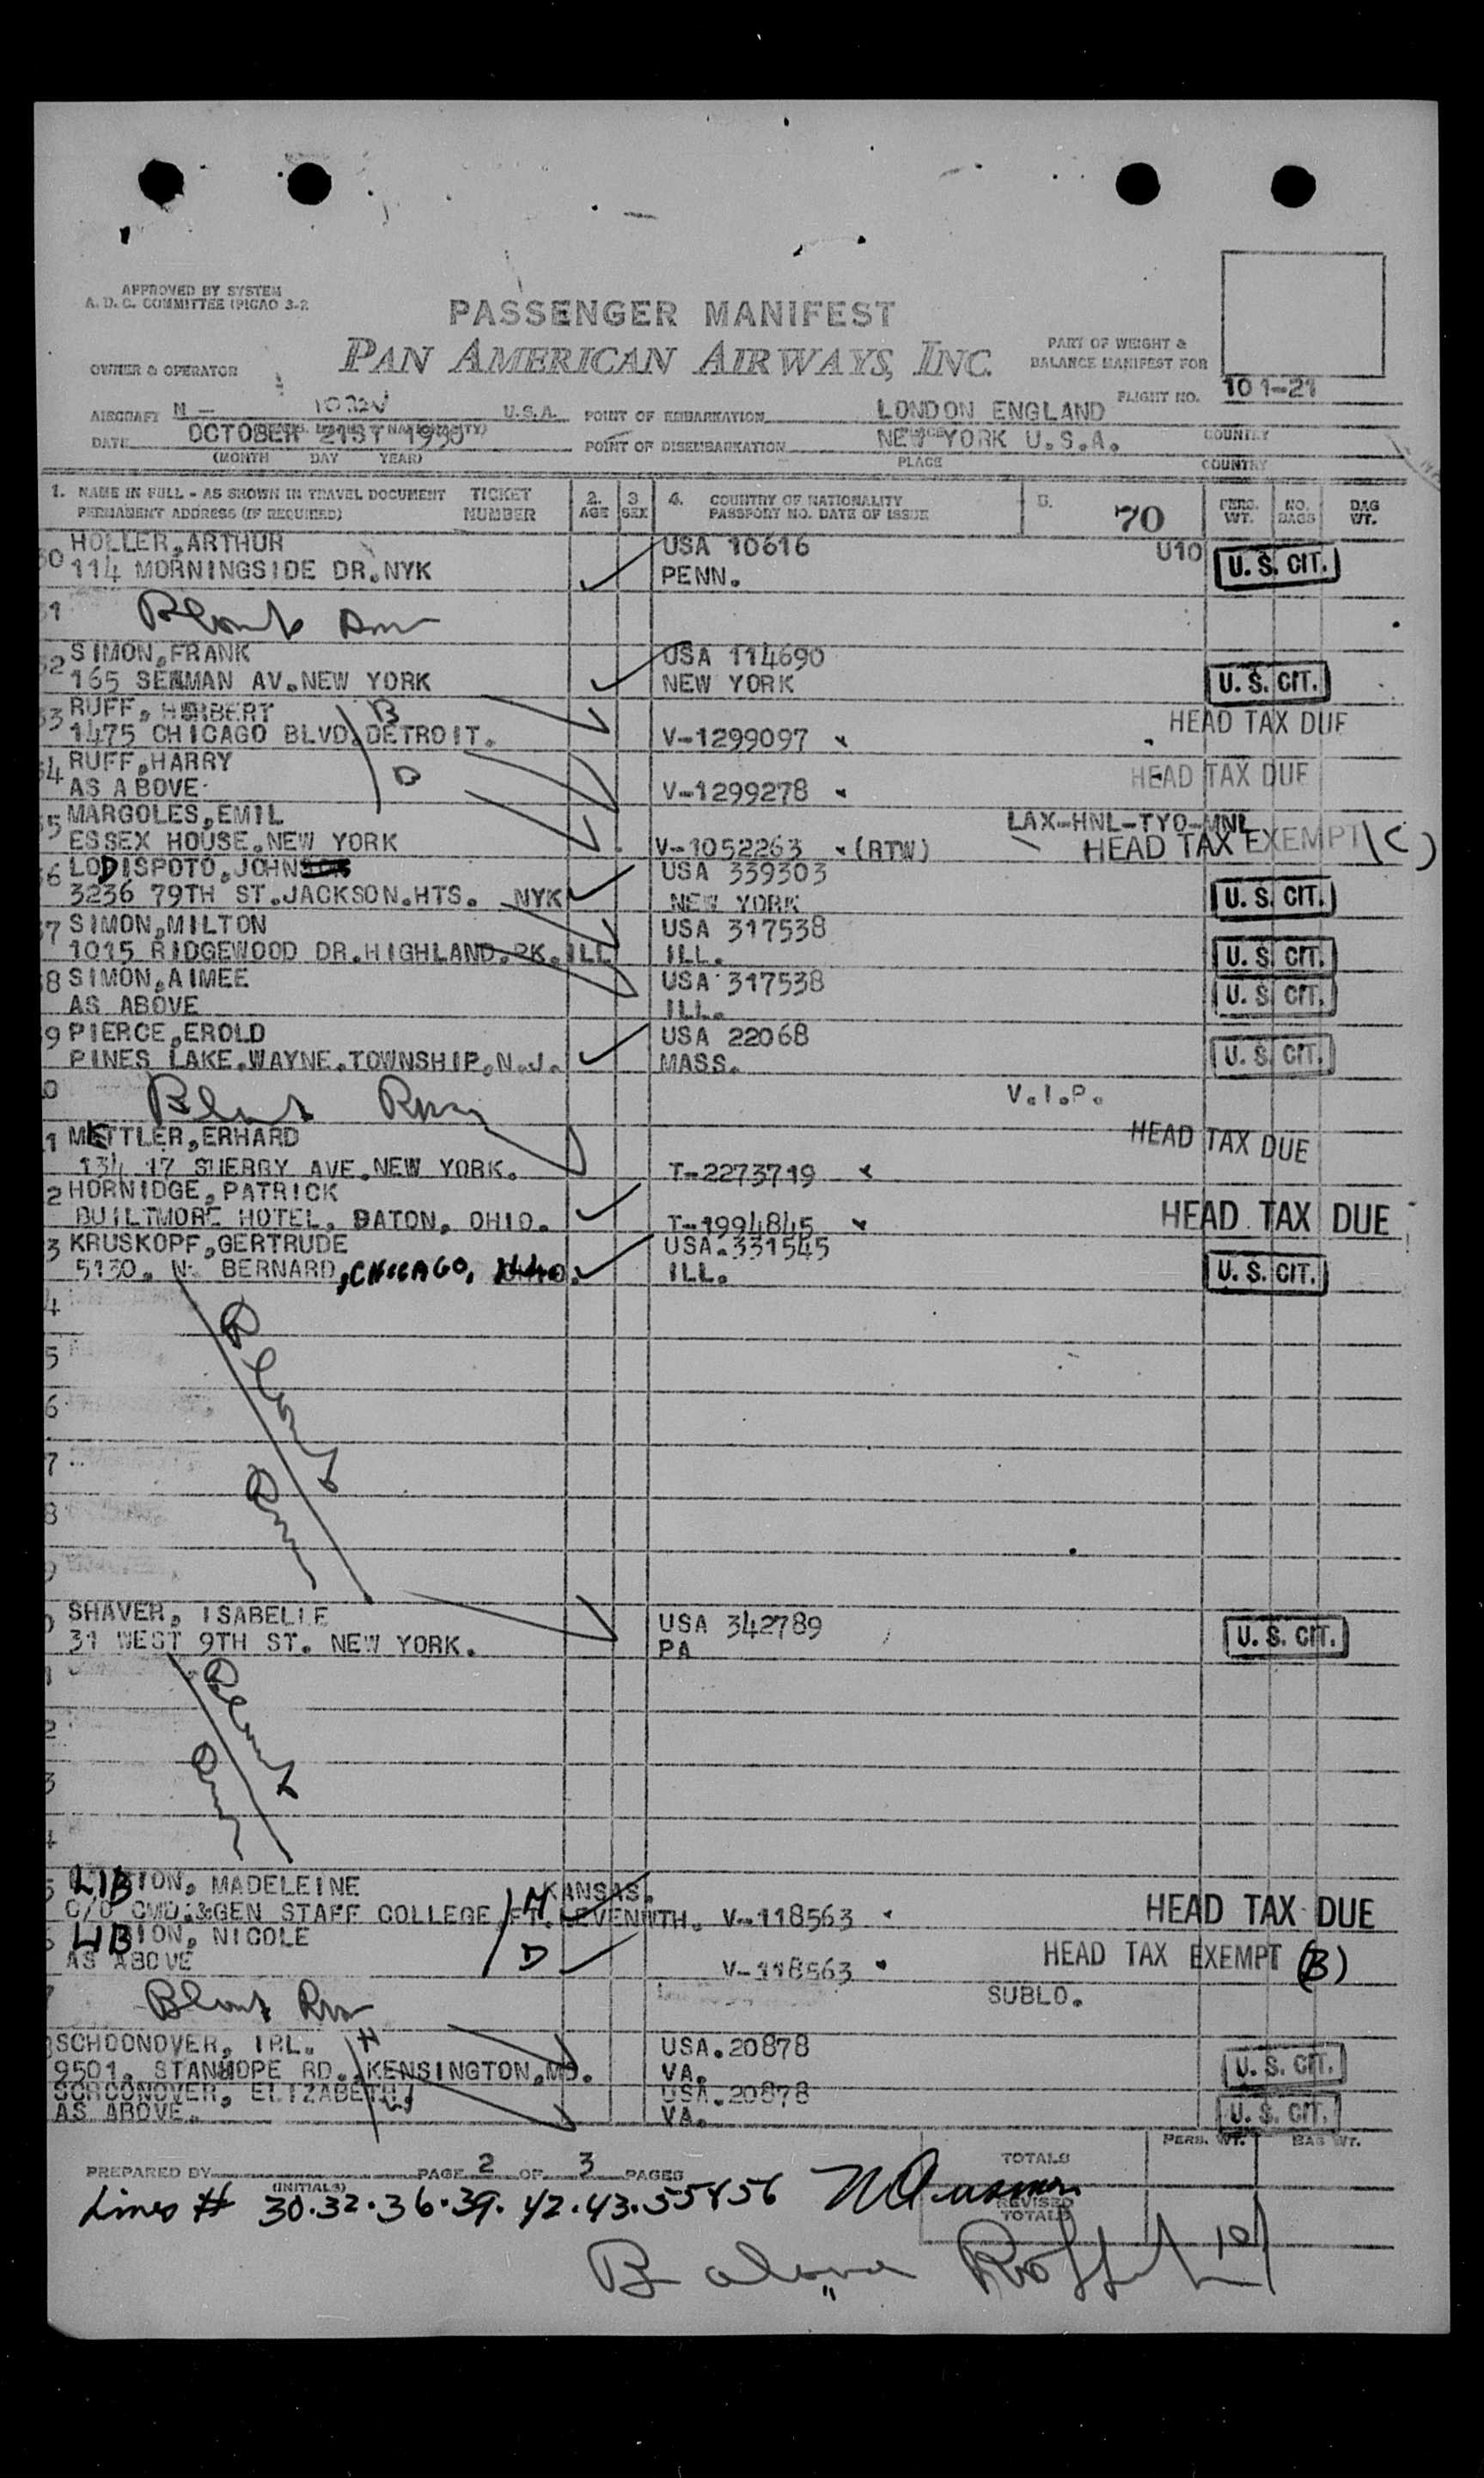 APPROVED BY SYSTEM
A. D. C. COMMITTEE (PICAO 3-2
PASSENGER MANIFEST
PAN AMERICAN AIRWAYS, INC.
PART OF WEIGHT &
BALANCE MANIFEST FOR
OWNER & OPERATOR
FLIGHT NO. 101-21
AIRCRAFT N- U.S.A. POINT OF EMBARKATION LONDON ENGLAND
DATE OCTOBER 21ST 1950 POINT OF DISEMBARKATION NEW YORK U.S.A. COUNTRY
(MONTH DAY YEAR) PLACE COUNTRY
1. NAME IN FULL - AS SHOWN IN TRAVEL DOCUMENT TICKET 2. 3 4. COUNTRY OF NATIONALITY 5. 70 PERS. NO. BAG
PERMANENT ADDRESS (IF REQUIRED) NUMBER AGE SEX PASSPORT NO. DATE OF ISSUE WT. BAGS WT.
HOLLER, ARTHUR USA 10616 U10 U. S. CIT.
30 114 MORNINGSIDE DR.NYK PENN.
1 Blank
32 SIMON, FRANK USA 114690
165 SEAMAN AV.NEW YORK NEW YORK U. S. CIT.
33 RUFF, HERBERT B HEAD TAX DUE
1475 CHICAGO BLVD.DETROIT. V-1299097 x
34 RUFF, HARRY D HEAD TAX DUE
AS ABOVE V-1299278
35 MARGOLES, EMIL LAX-HNL-TYO-MNL
ESSEX HOUSE.NEW YORK V-1052263 x(RTW) HEAD TAX EXEMPT (C)
6 LODISPOTO, JOHN USA 339303
3236 79TH ST.JACKSON.HTS. NYK NEW YORK U. S. CIT.
37 SIMON, MILTON USA 317538
1015 RIDGEWOOD DR.HIGHLAND.PK.ILL ILL. U. S. CIT.
38 SIMON, AIMEE USA 317538 U. S. CIT.
AS ABOVE ILL.
9 PIERCE, EROLD USA 22068
PINES LAKE.WAYNE.TOWNSHIP.N.J. MASS. U. S. CIT.
0 Blank V.I.P.
1 METTLER, ERHARD HEAD TAX DUE
134 17 SHERRY AVE.NEW YORK. T-2273719 x
2 HORNIDGE, PATRICK
BUILTMORE HOTEL, DATON, OHIO. T-1994845 x HEAD TAX DUE
3 KRUSKOPF, GERTRUDE USA.331545
5130. N. BERNARD, CHICAGO, ILL. U. S. CIT.
4
Blank
5
6
7
8
9
0 SHAVER, ISABELLE USA 342789
31 WEST 9TH ST. NEW YORK. PA U. S. CIT.
1
Blank
2
3
4
5 LIBION, MADELEINE M KANSAS.
C/O CMD.&GEN STAFF COLLEGE.FT.LEVENWTH. V-118563 HEAD TAX DUE
6 LIBION, NICOLE
AS ABOVE D V-118563 HEAD TAX EXEMPT (B)
Blank SUBLO.
SCHOONOVER, IRL. H USA.20878
9501. STANHOPE RD. KENSINGTON.MD. VA. U. S. CIT.
SCHOONOVER, ELIZABETH USA.20878
AS ABOVE. VA. U. S. CIT.
PERS. WT. BAG WT.
PREPARED BY PAGE 2 OF 3 PAGES TOTALS
(INITIALS)
Lines # 30.32.36.39. 42.43.55 & 56
REVISED
TOTALS